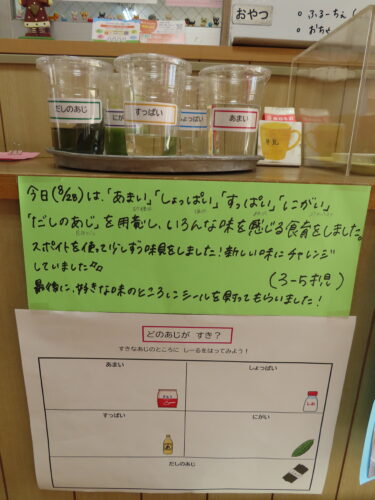 おやつ
だしのあじ
にがい
すっぱい
しょっぱい
あまい
今日(8/28)は、「あまい」「しょっぱい」「すっぱい」「にがい」
「だしのあじ」を用意し、いろんな味を感じる食育をしました。
スポイトを使って少しずつ味見をしました!新しい味にチャレンジ
していました
(3〜5才児)
最後に、好きな味のところにシールを貼ってもらいました!
どのあじが すき?
すきなあじのところに しーるをはってみよう!
あまい
しょっぱい
すっぱい
にがい
だしのあじ